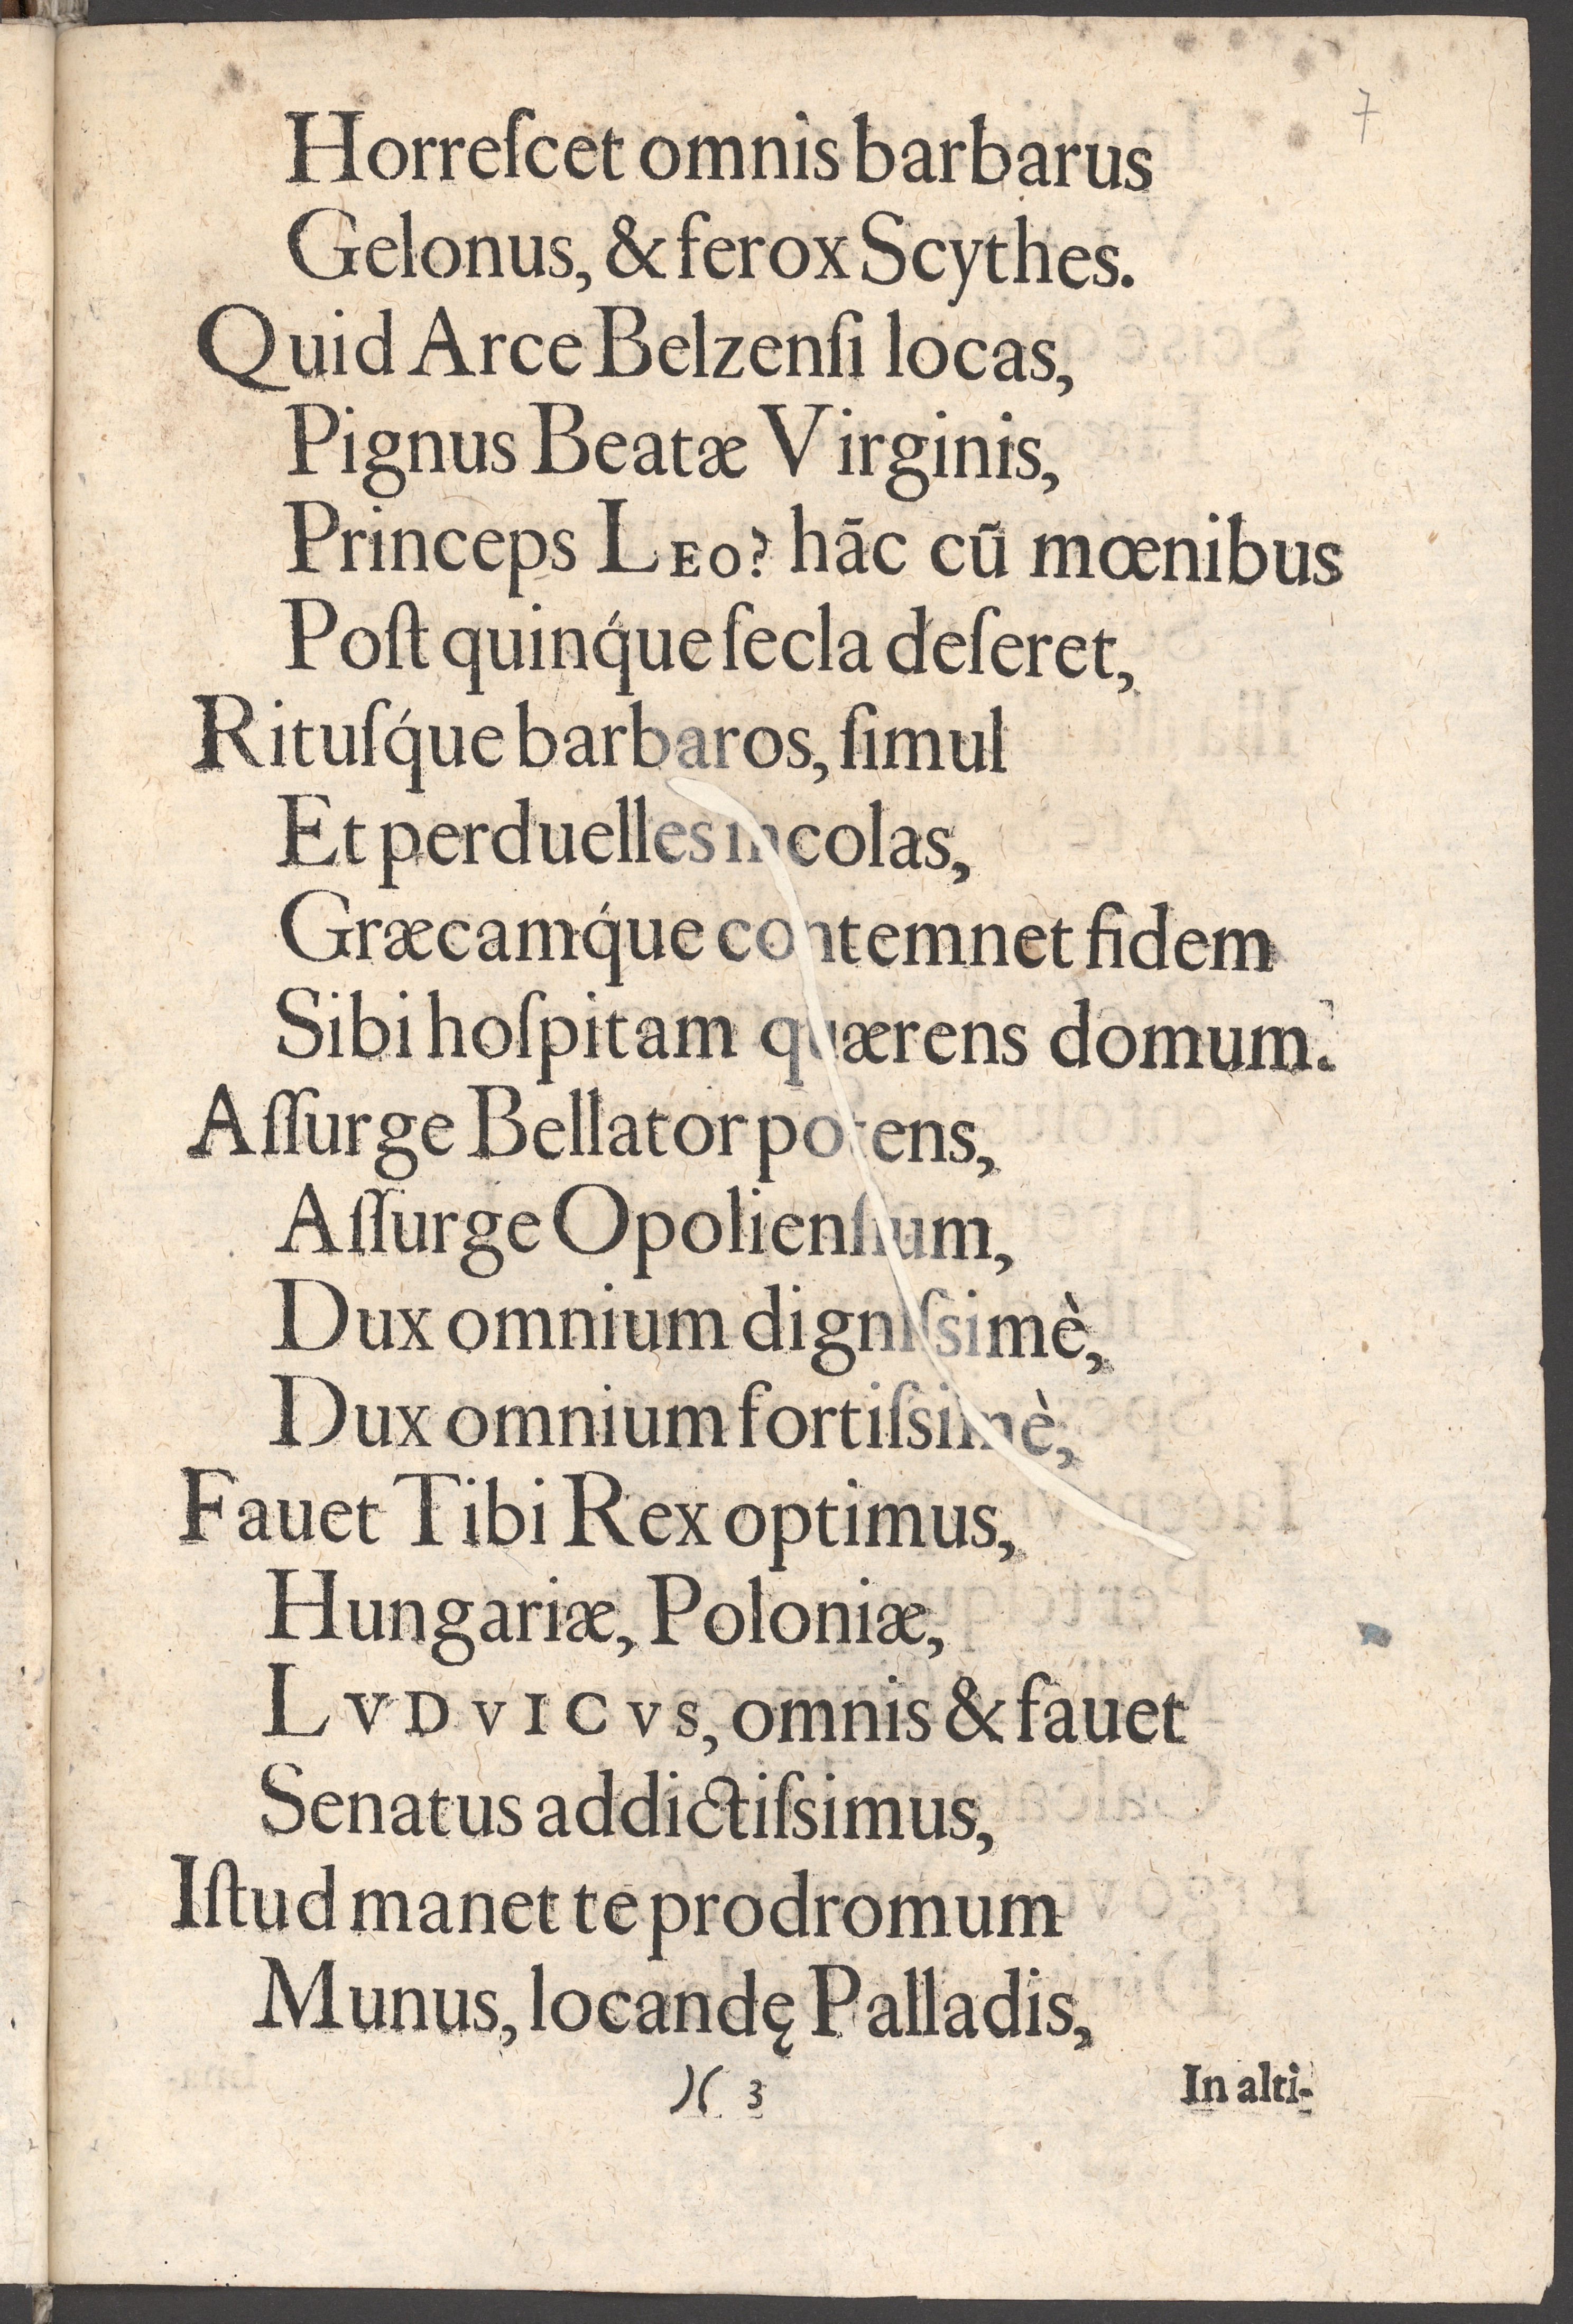 7
Horreſcet omnis barbarus
Gelonus, & ferox Scythes.
Quid Arce Belzenſi locas,
Pignus Beatæ Virginis,
Princeps LEO? hāc cū mœnibus
Poſt quinq́ue ſecla deſeret,
Rituſq́ue barbaros, ſimul
Et perduelles incolas,
Græcamq́ue contemnet fidem
Sibi hoſpitam quærens domum.
Aſſurge Bellator potens,
Aſſurge Opolienſium,
Dux omnium digniſsimè,
Dux omnium fortiſsimè,
Fauet Tibi Rex optimus,
Hungariæ, Poloniæ,
LVDVICVS, omnis & fauet
Senatus addictiſsimus,
Iſtud manet te prodromum
Munus, locandę Palladis,
)( 3 In alti-